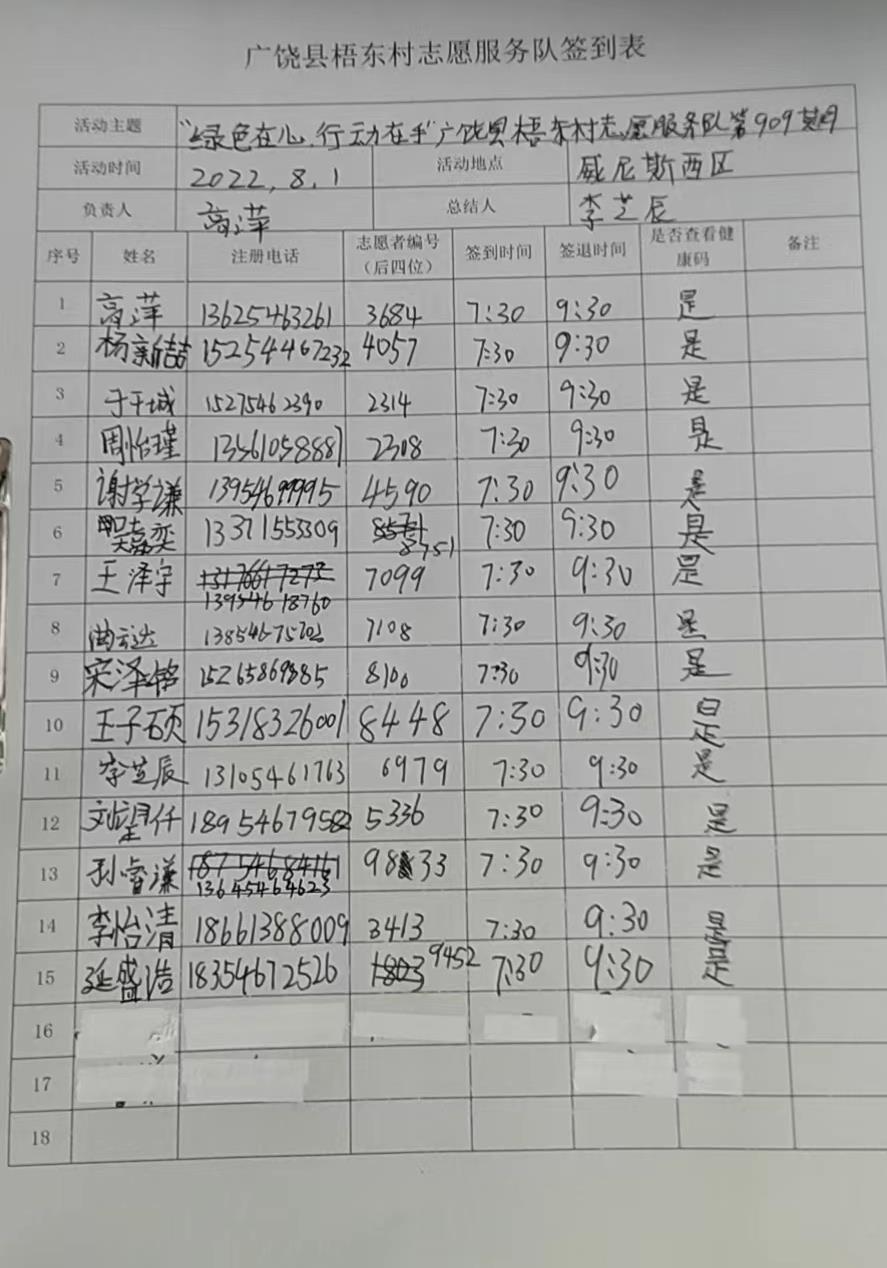 广饶县梧东村志愿服务队签到表
活动主题 "绿色在心,行动在手"广饶县梧东村志愿服务队第909期
活动时间 2022,8,1 活动地点 威尼斯西区
负责人 高萍 总结人 李芝辰
序号 姓名 注册电话 志愿者编号(后四位) 签到时间 签退时间 是否查看健康码 备注
1 高萍 13625463261 3684 7:30 9:30 是
2 杨新喆 15254467232 4057 7:30 9:30 是
3 于千城 15275462390 2314 7:30 9:30 是
4 周怡瑾 13561058887 2308 7:30 9:30 是
5 谢学谦 13954699995 4590 7:30 9:30 是
6 13371553309 8751 7:30 9:30 是
7 王泽宇 13954618760 7099 7:30 9:30 是
8 曲云达 7108 7:30 9:30 是
9 宋泽铭 15265869885 8100 7:30 9:30 是
10 王子硕 15318326001 8448 7:30 9:30 是
11 李芝辰 13105461763 6979 7:30 9:30 是
12 刘望仟 18954679582 5336 7:30 9:30 是
13 孙睿谦 13645464623 9833 7:30 9:30 是
14 李怡清 18661388009 3413 7:30 9:30 是
15 延盛浩 18354672526 9452 7:30 9:30 是
16
17
18